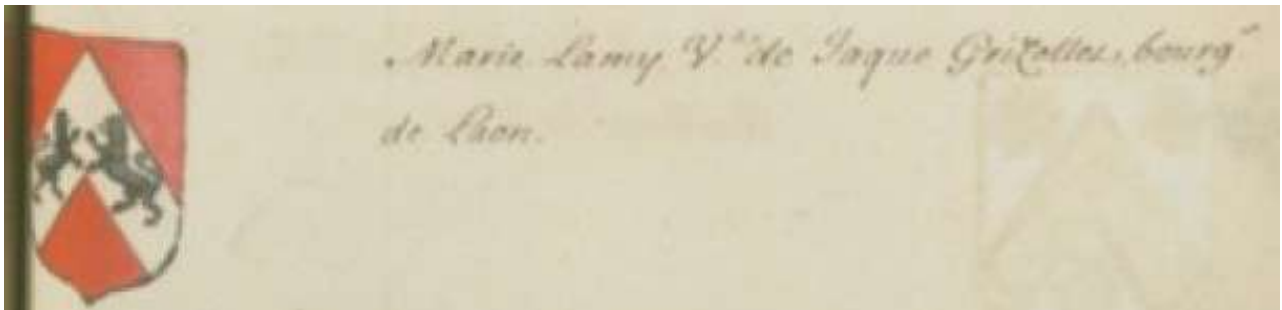 Marie Lamy V.ᵉ de Jaque Grizelles, bourg.ˢ
de Laon.